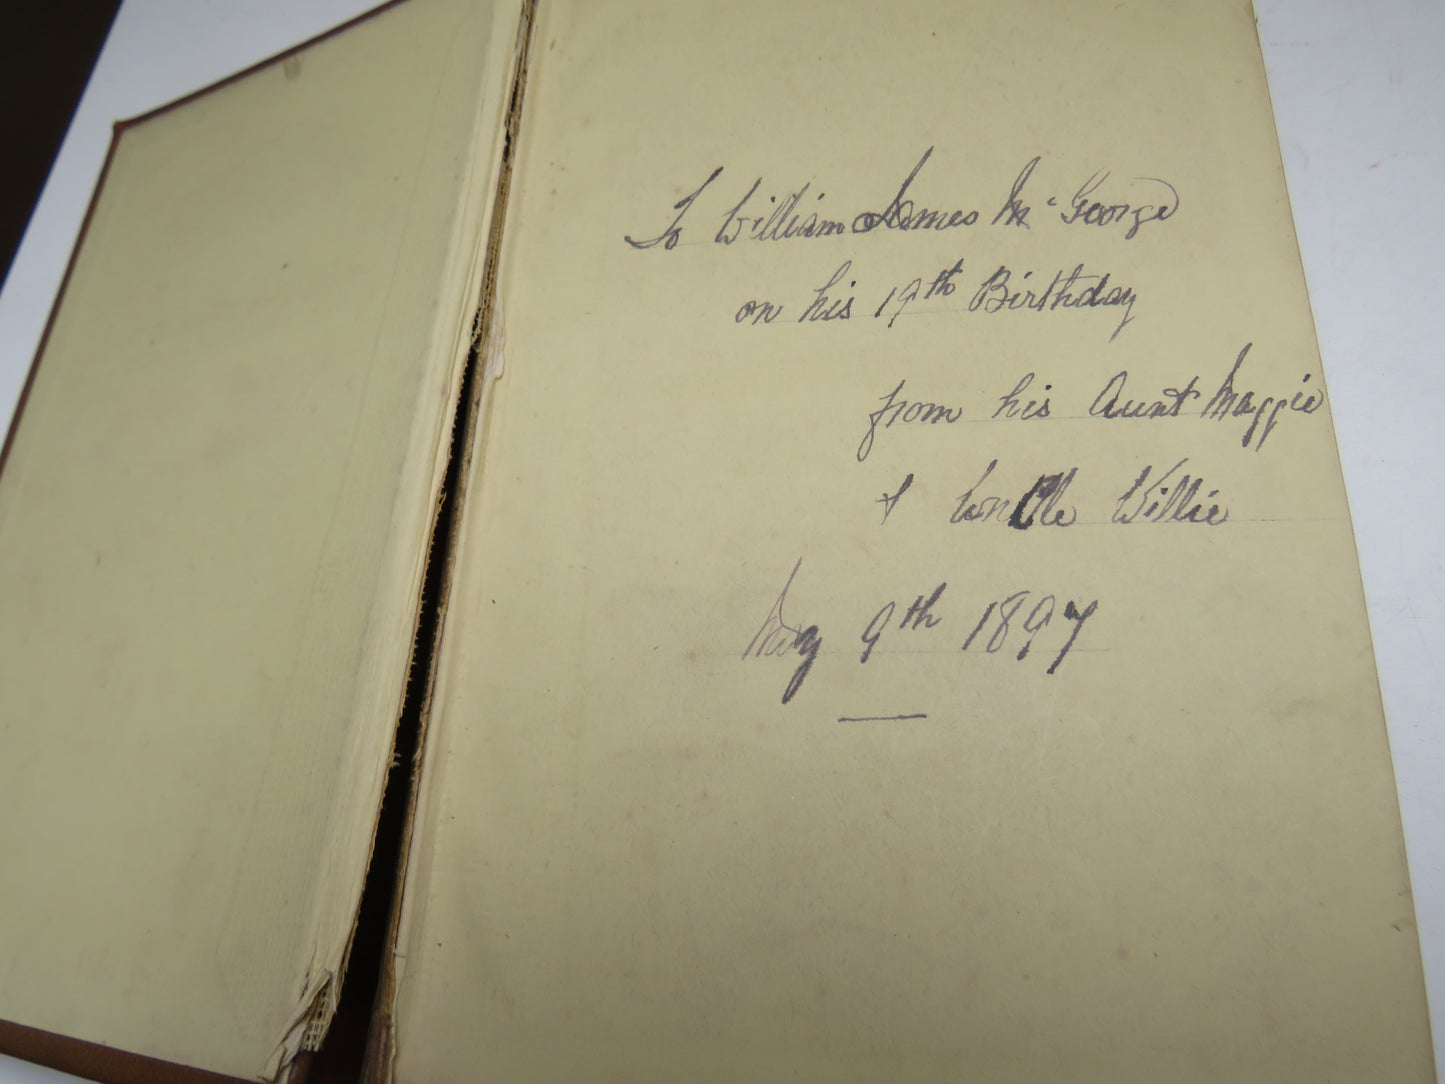 To William James McGeorge
on his 19th Birthday
from his Aunt Maggie
& Uncle Willie
May 9th 1897